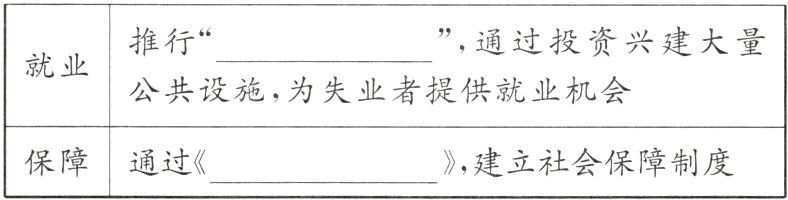 就业
推行“____________”,通过投资兴建大量
公共设施,为失业者提供就业机会
保障
通过《____________》,建立社会保障制度